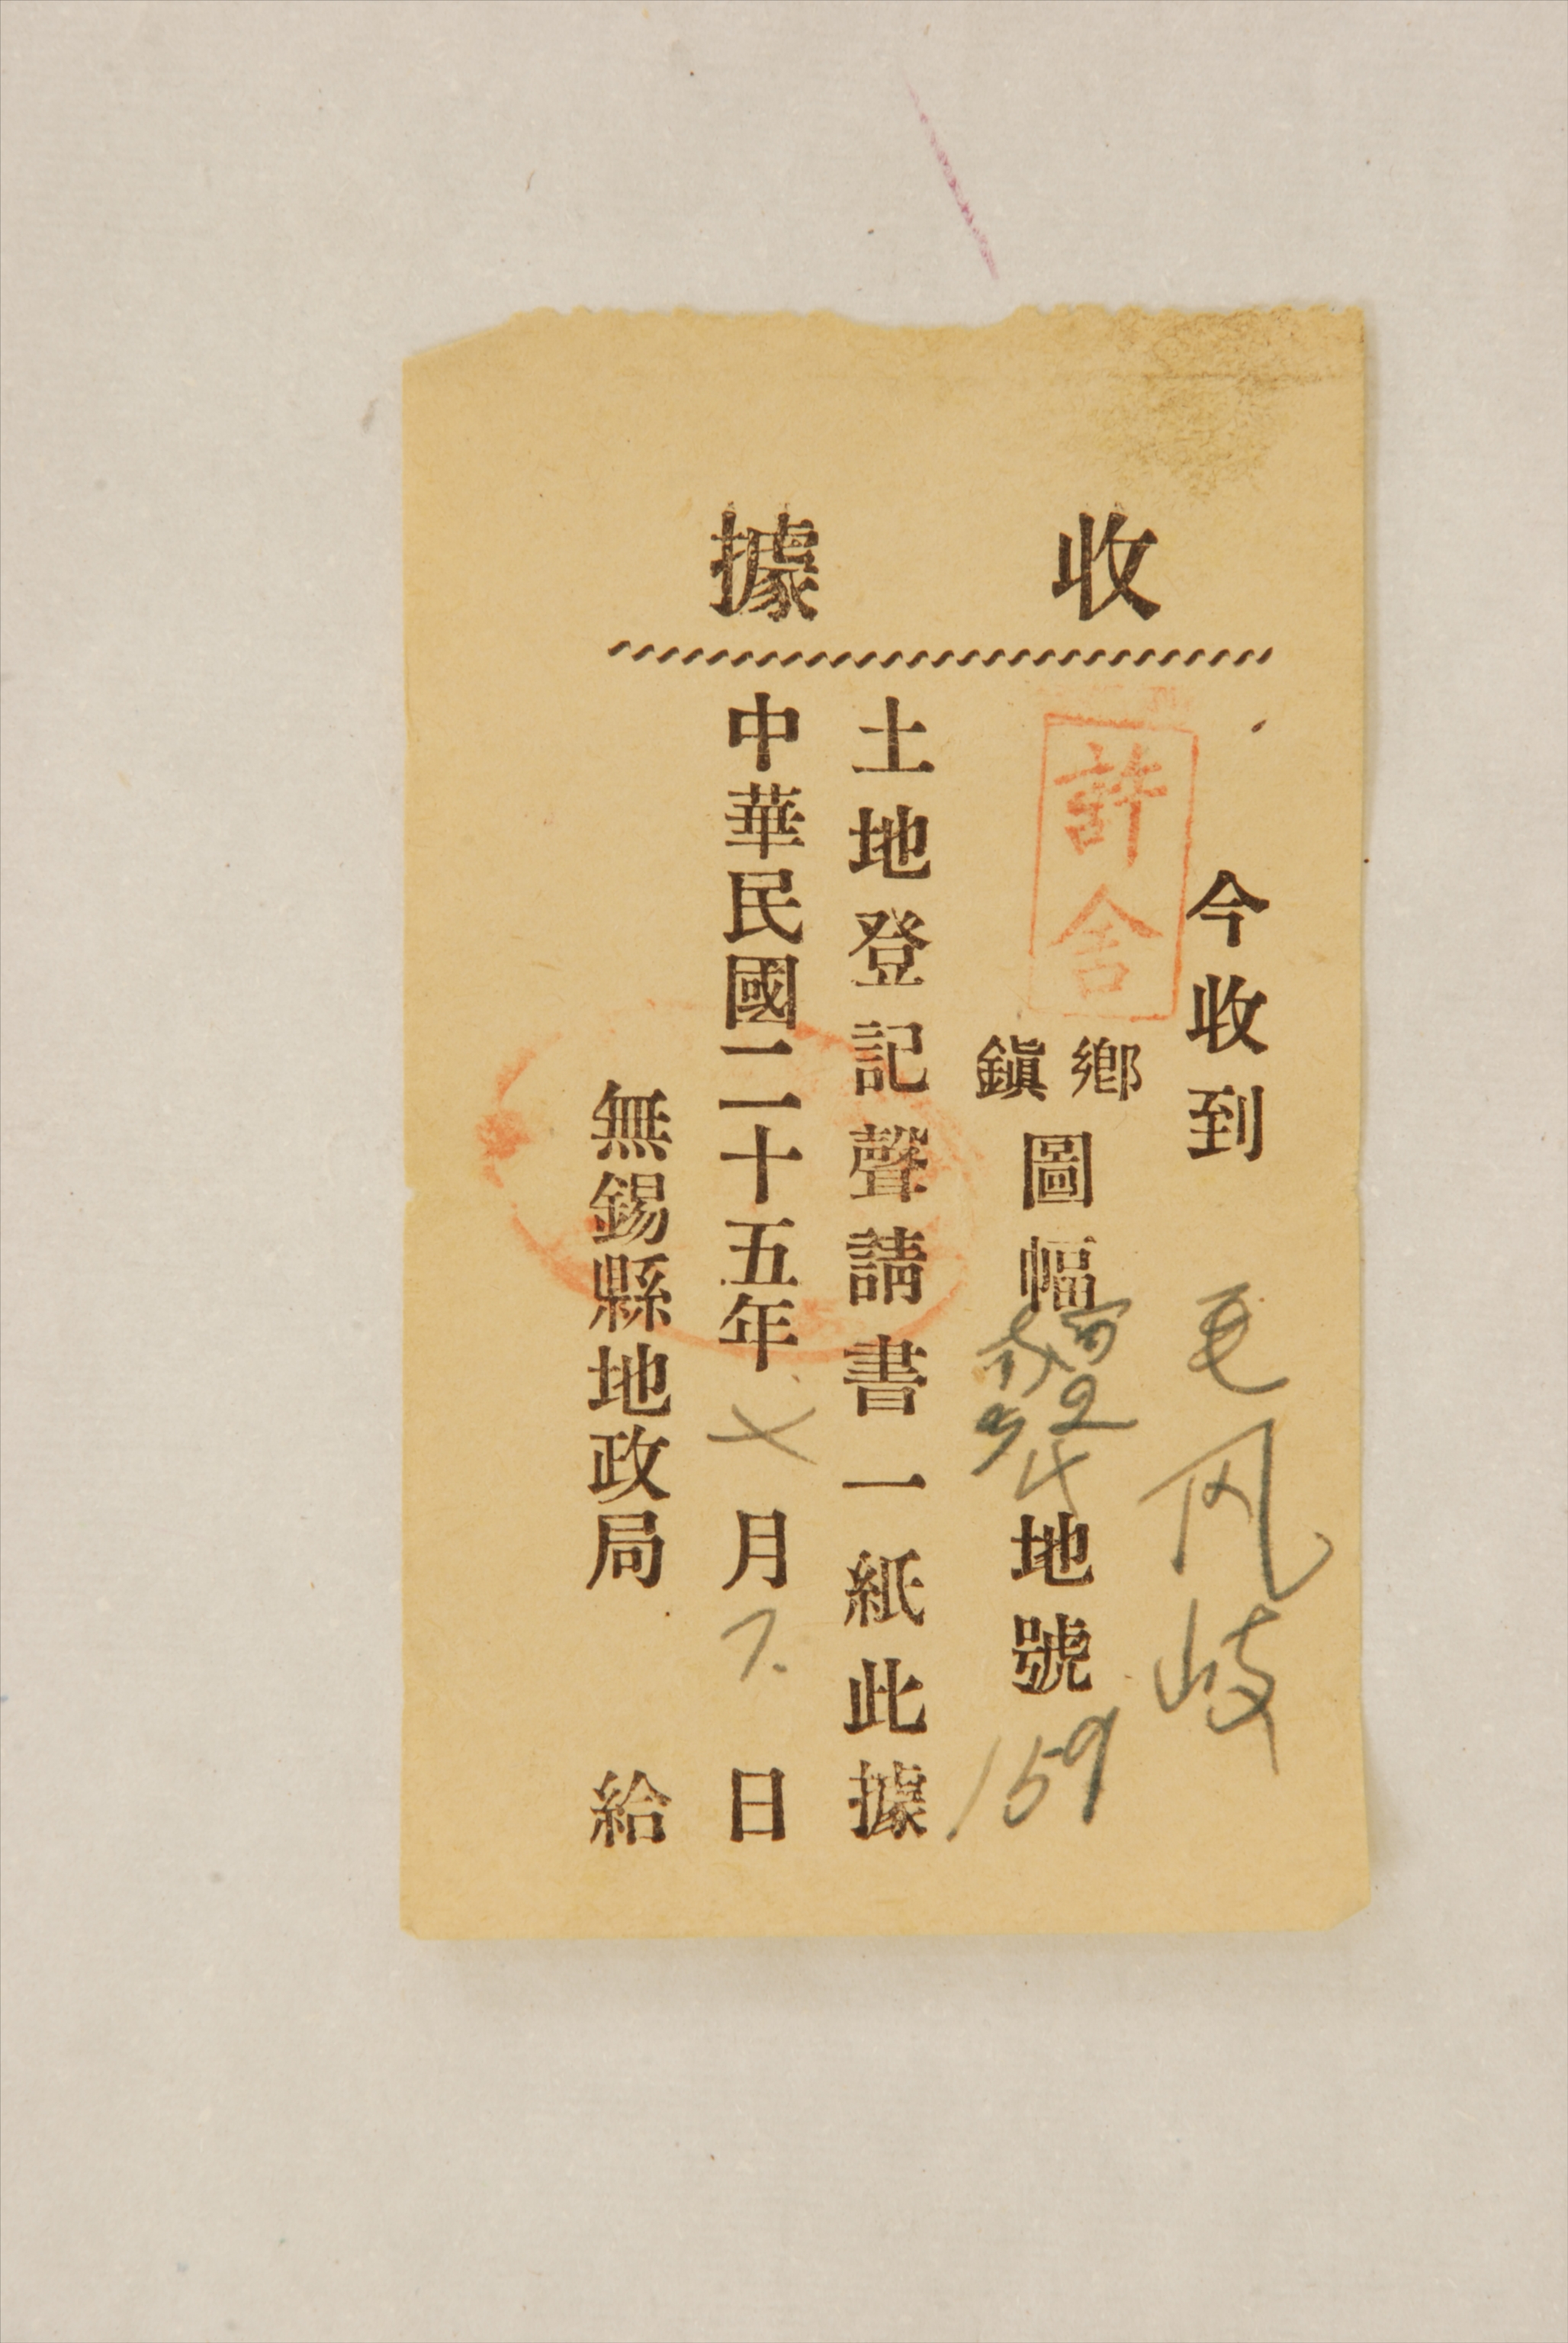 收據
今收到 毛风岐
許舍 鄉鎮圖幅 地號 159
土地登記聲請書一紙此據
中華民國二十五年 七 月 7. 日
無錫縣地政局 給